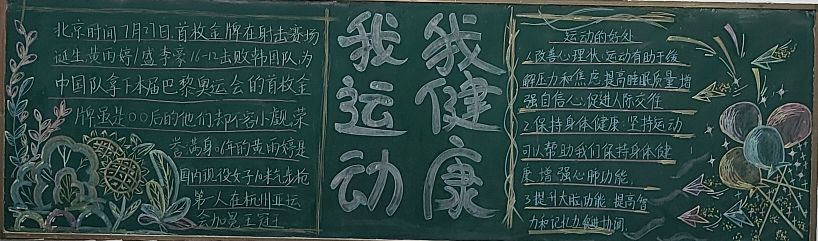 北京时间7月27日首枚金牌在射击赛场
诞生黄雨婷/盛李豪16-12击败韩国队,为
中国队拿下本届巴黎奥运会的首枚金
牌虽是00后的他们却不容小觑荣
誉满身06年的黄雨婷是
国内现役女子10米气步枪
第一人在杭州亚运
会加冕三冠王
我运动
我健康
运动的好处
1.改善心理状:运动有助于缓
解压力和焦虑提高睡眠质量增
强自信心,促进人际交往
2.保持身体健康:坚持运动
可以帮助我们保持身体健
康,增强心肺功能,
3.提升大脑功能,提高智
力和记忆力促进协调.